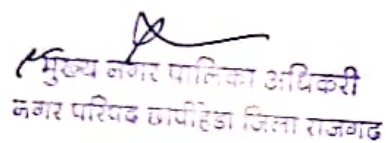 मुख्य नगर पालिका अधिकरी
नगर परिषद छापीहेडा जिला राजगढ